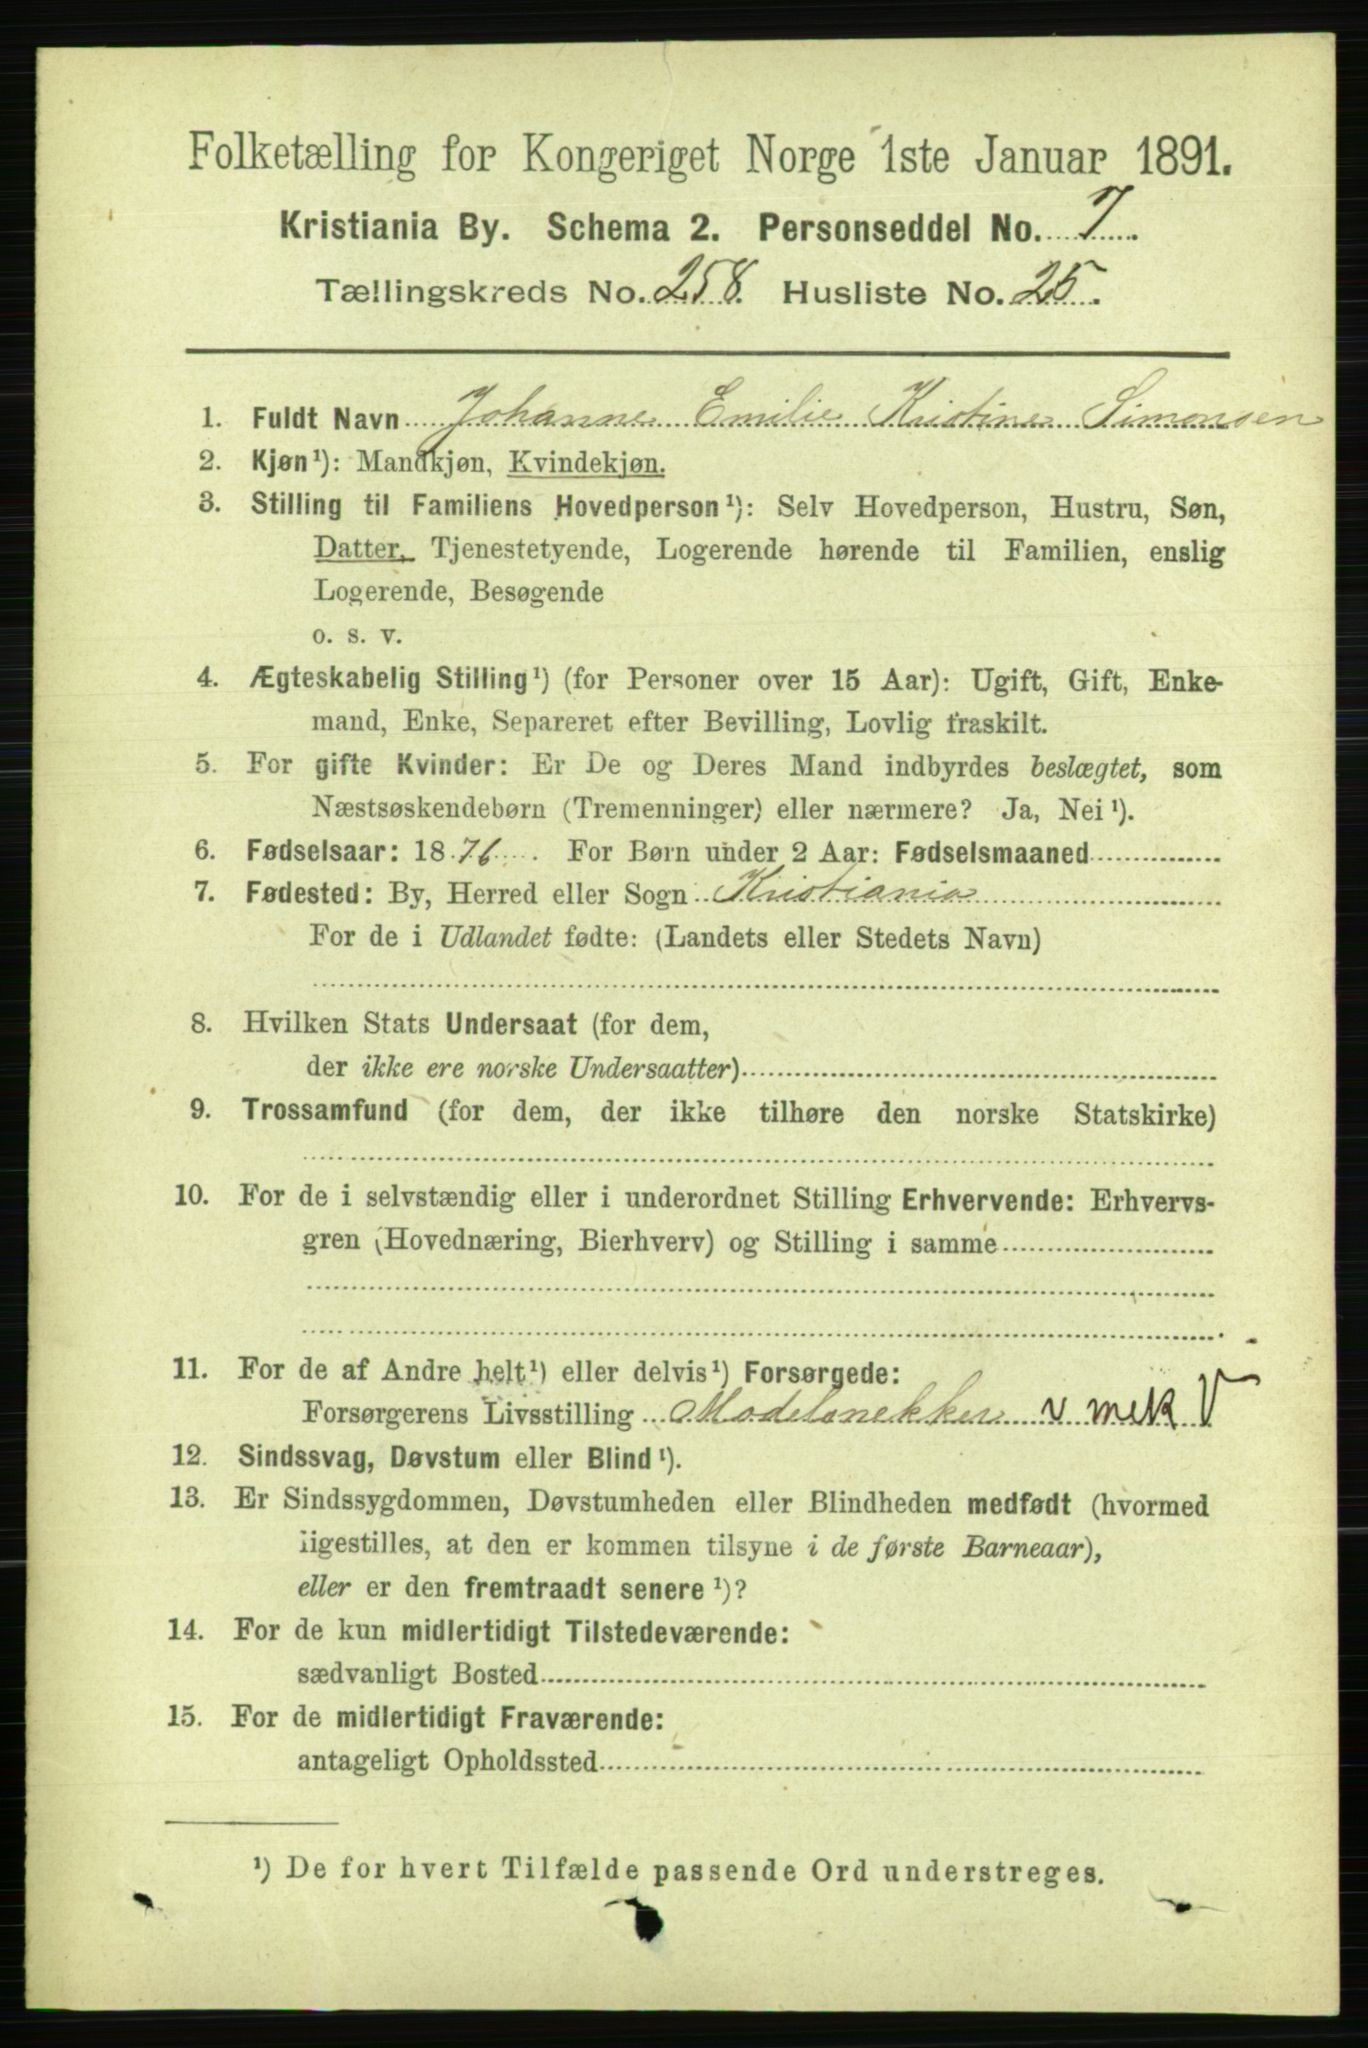 Folketælling for Kongeriget Norge 1ste Januar 1891.
Kristiania By. Schema 2. Personseddel No. 7.
Tællingskreds No. 258. Husliste No. 25.
1. Fuldt Navn Johanne Emilie Kristine Simonsen
2. Kjøn¹): Mandkjøn, Kvindekjøn.
3. Stilling til Familiens Hovedperson¹): Selv Hovedperson, Hustru, Søn,
Datter, Tjenestetyende, Logerende hørende til Familien, enslig
Logerende, Besøgende
o. s. v.
4. Ægteskabelig Stilling¹) (for Personer over 15 Aar): Ugift, Gift, Enke-
mand, Enke, Separeret efter Bevilling, Lovlig fraskilt.
5. For gifte Kvinder: Er De og Deres Mand indbyrdes beslægtet, som
Næstsøskendebørn (Tremenninger) eller nærmere? Ja, Nei¹).
6. Fødselsaar: 1876. For Børn under 2 Aar: Fødselsmaaned
7. Fødested: By, Herred eller Sogn Kristiania
For de i Udlandet fødte: (Landets eller Stedets Navn)
8. Hvilken Stats Undersaat (for dem,
der ikke ere norske Undersaatter)
9. Trossamfund (for dem, der ikke tilhøre den norske Statskirke)
10. For de i selvstændig eller i underordnet Stilling Erhvervende: Erhvervs-
gren (Hovednæring, Bierhverv) og Stilling i samme
11. For de af Andre helt¹) eller delvis¹) Forsørgede:
Forsørgerens Livsstilling Modelsnekker v mek V
12. Sindssvag, Døvstum eller Blind¹).
13. Er Sindssygdommen, Døvstumheden eller Blindheden medfødt (hvormed
ligestilles, at den er kommen tilsyne i de første Barneaar),
eller er den fremtraadt senere¹)?
14. For de kun midlertidigt Tilstedeværende:
sædvanligt Bosted
15. For de midlertidigt Fraværende:
antageligt Opholdssted
¹) De for hvert Tilfælde passende Ord understreges.